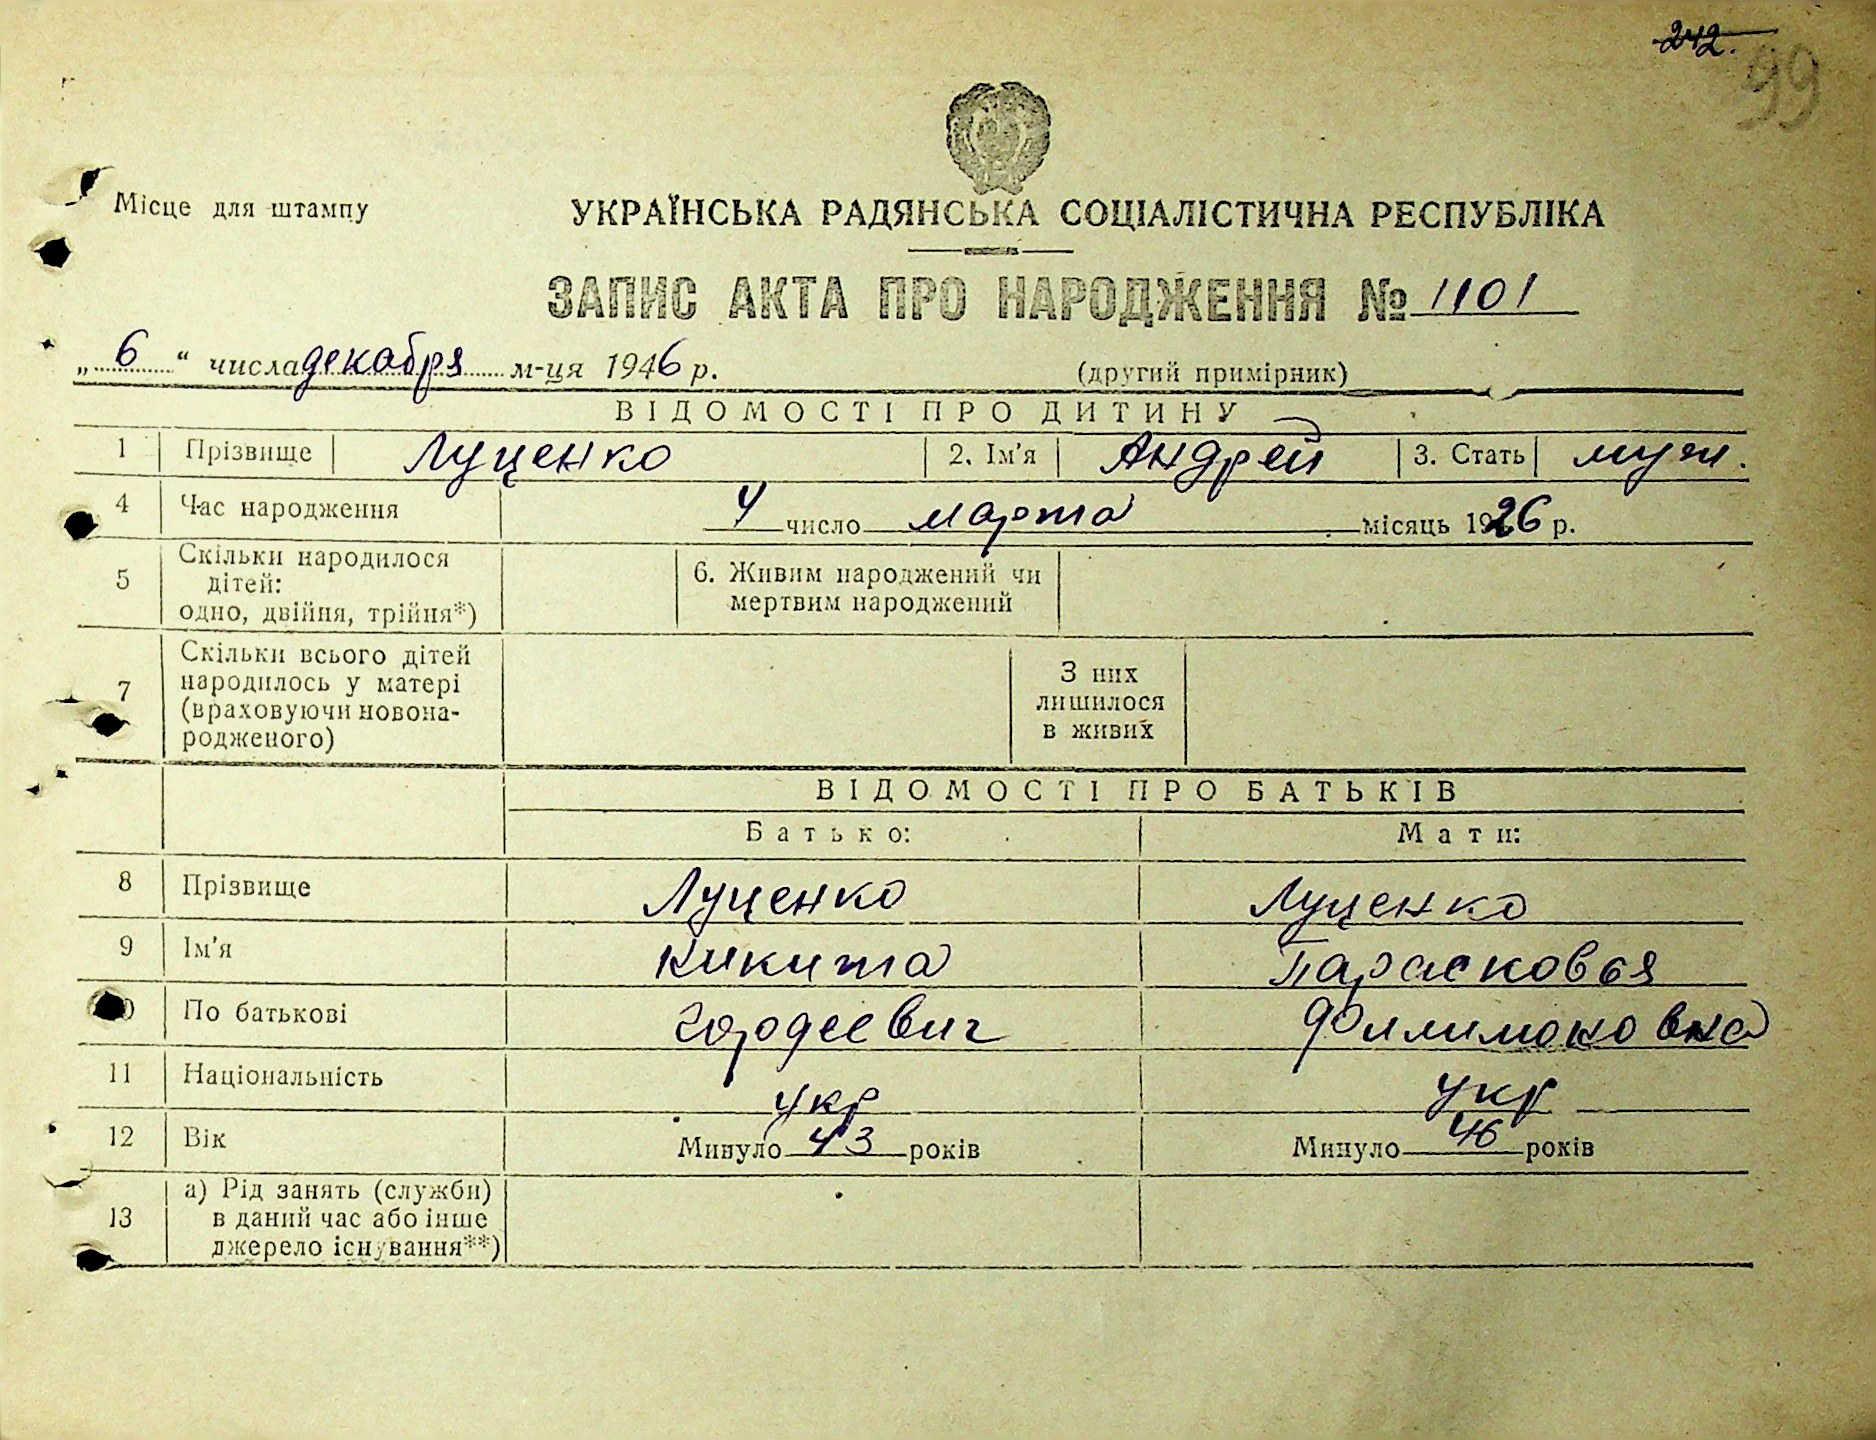 242.
99
Місце для штампу
УКРАЇНСЬКА РАДЯНСЬКА СОЦІАЛІСТИЧНА РЕСПУБЛІКА
ЗАПИС АКТА ПРО НАРОДЖЕННЯ № 1101
„6“ числа декабря м-ця 1946 р. (другий примірник)
ВІДОМОСТІ ПРО ДИТИНУ
1 Прізвище Луценко 2. Ім'я Андрей 3. Стать муж.
4 Час народження 4 число марта місяць 1926 р.
5 Скільки народилося дітей: одно, двійня, трійня*) 6. Живим народжений чи мертвим народжений
7 Скільки всього дітей народилось у матері (враховуючи новона-родженого) З них лишилося в живих
ВІДОМОСТІ ПРО БАТЬКІВ
Батько: Мати:
8 Прізвище Луценко Луценко
9 Ім'я Никита Парасковья
10 По батькові Гордеевич Филимоновна
11 Національність укр укр
12 Вік Минуло 43 років Минуло 46 років
13 а) Рід занять (служби) в даний час або інше джерело існування**)